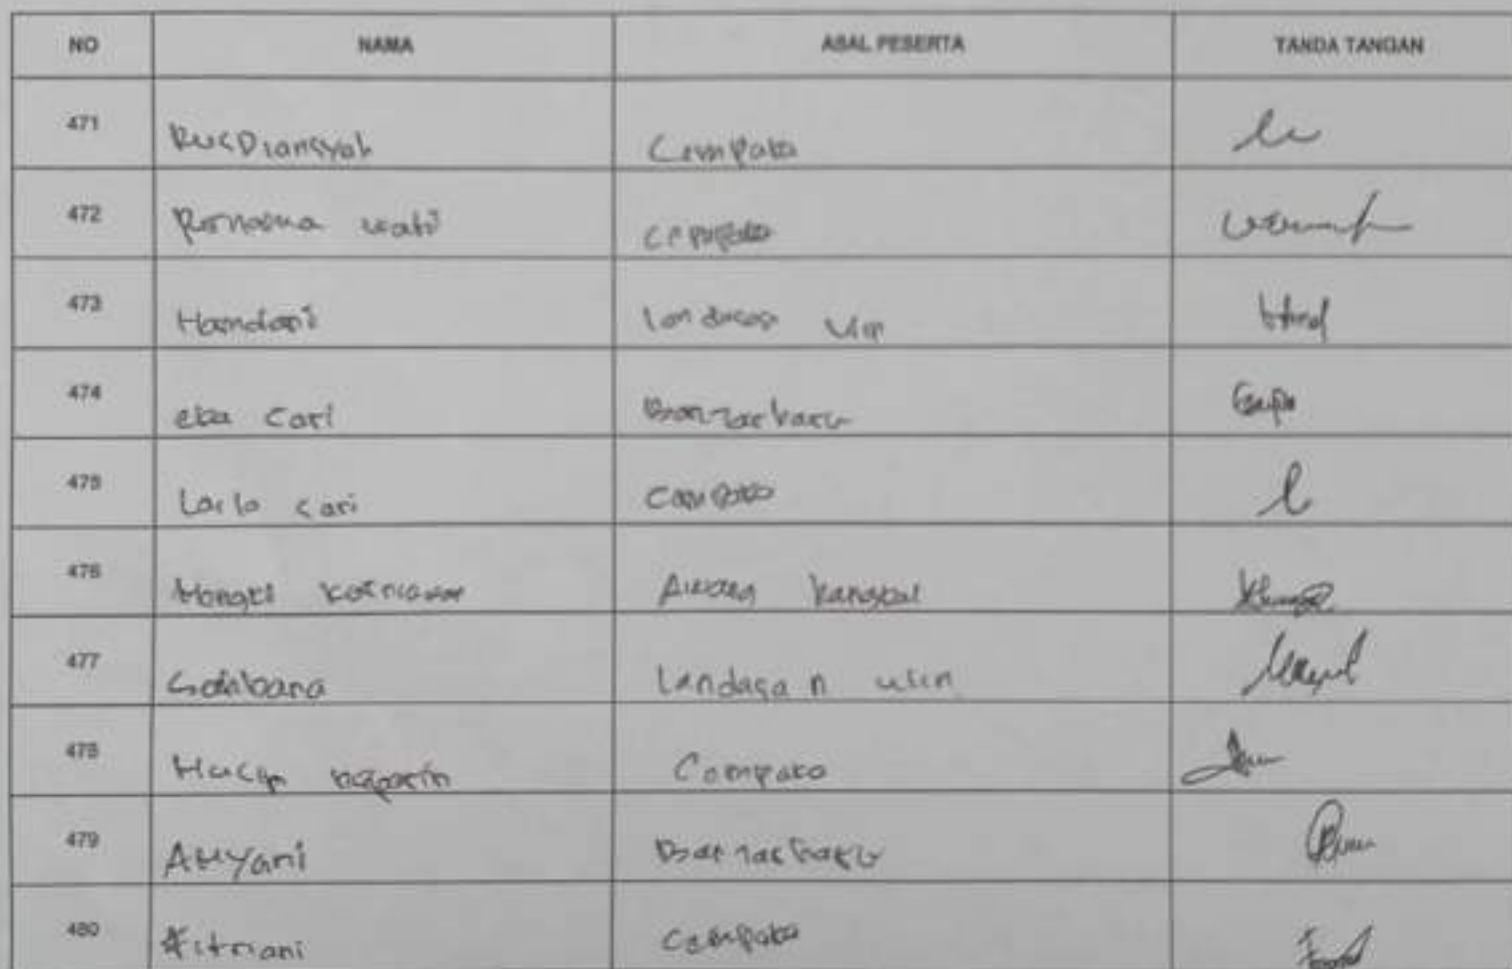 NO NAMA ASAL PESERTA TANDA TANGAN
471 RusDiansyah Cempaka
472 wati Cempaka
473 Hamdani landasan Ulin
474 eka sari Banjarbaru
475 Laila sari Cempaka
476 Hongki kurniawan kangkal
477 landasan ulin
478 Cempaka
479 AHyani Banjarbaru
480 Fitriani Cempaka